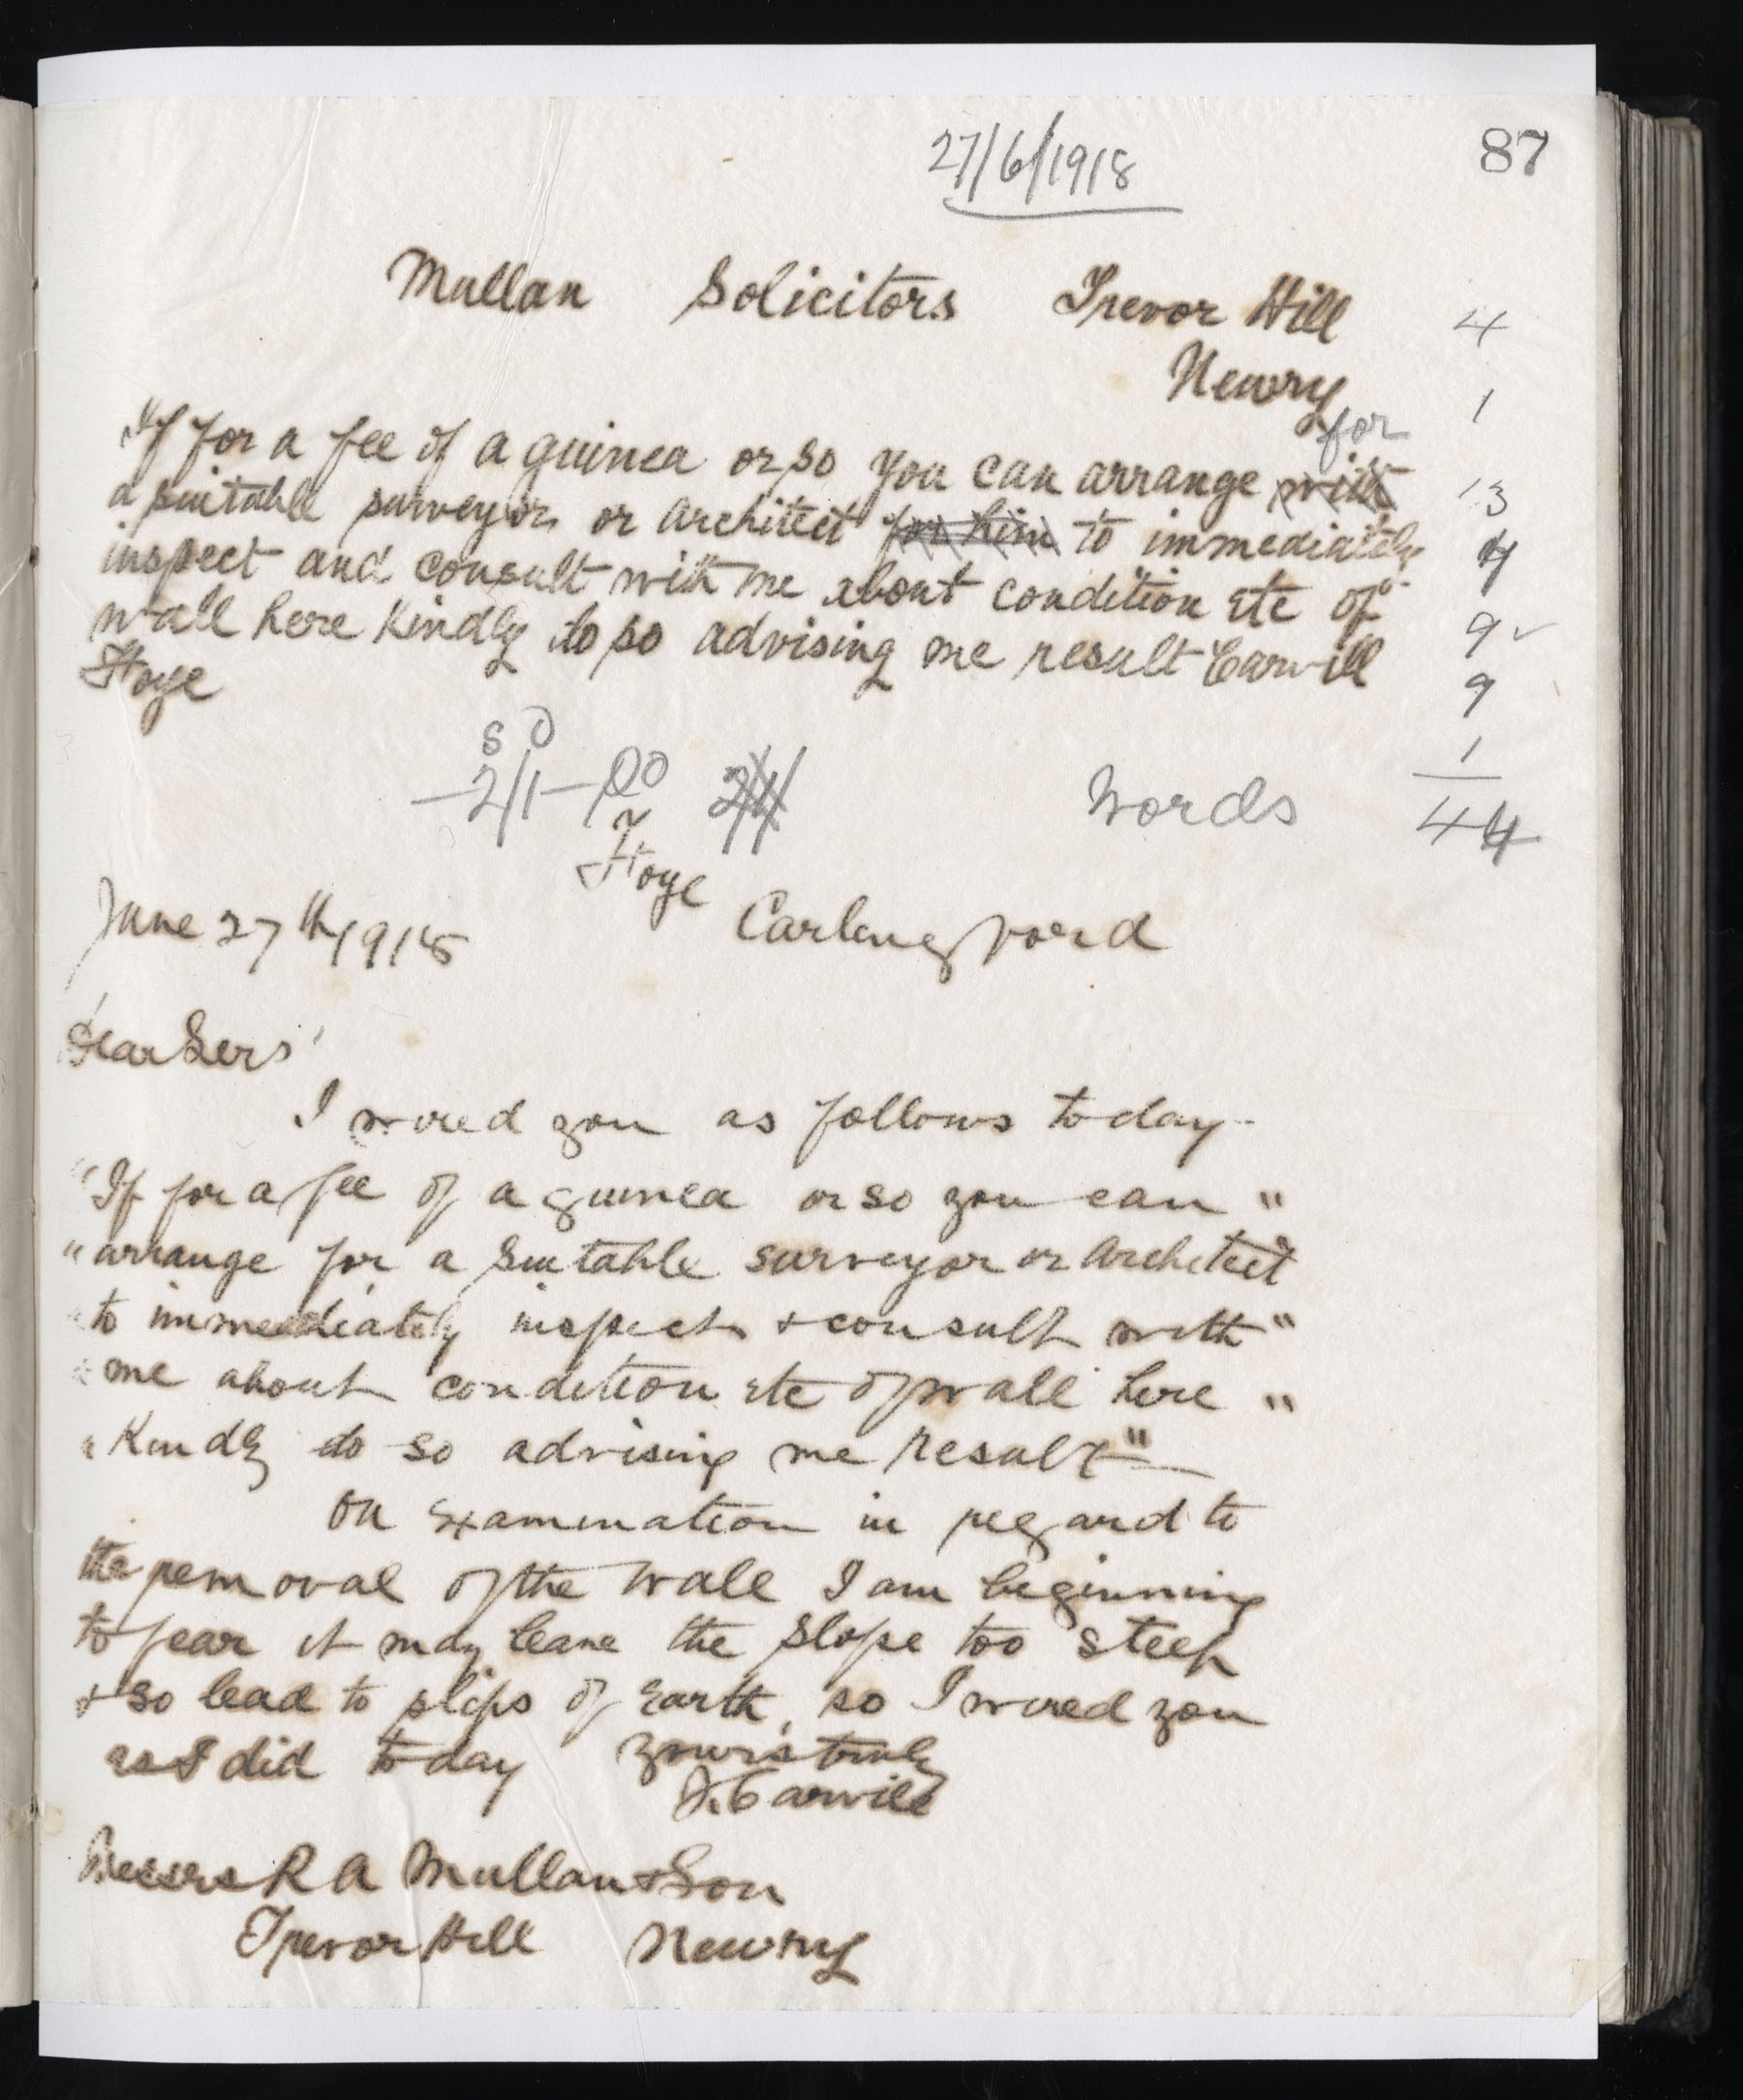 87
27/6/1918
Mullan Solicitors Trevor Hill 4
Newry 1
for
If for a fee of a guinea or so you can arrange with 13
a suitable surveyor or architect for him to immediately 7
inspect and consult with me about condition etc of 9
wall here Kindly do so advising me result Carvill 9
Hoye 1
S D
2/1 Words 44
Hoye Carlingford
June 27th 1918
Dear Sirs
I wired you as follows today
"If for a fee of a guinea or so you can "
" arrange for a suitable surveyor or Architect
" to immediately inspect & consult with "
" me about condition etc of wall here "
" Kindly do so advising me result "
On examination in regard to
the removal of the wall I am beginning
to fear it may leave the slope too steep
& so lead to slips of earth, so I wired you
as I did today yours truly
J. Carvill
Messrs R A Mullan & Son
Trevor Hill Newry